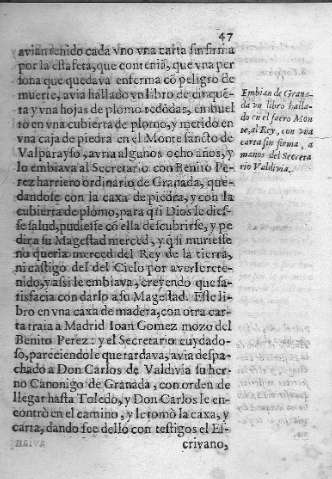 47
avian tenido cada vno vna carta sin firma
por la estafeta, que contenia, que vna per
sona que quedava enferma cõ peligro de
muerte, avia hallado vn libro de cinquẽ-
ta y vna hojas de plomo redõdas, enbuel
to en vna cubierta de plomo, y metido en
vna caja de piedra en el Monte sancto de
Valparayso, avria algunos ocho años, y
lo embiava al Secretario con Benito Pe-
rez harriero ordinario de Granada, que-
dandose con la caxa de piedra, y con la
cubierta de plomo, para q̃ si Dios le dies-
se salud, pudiesse cõ ella descubrirse, y pe
dir a su Magestad merced, y q̃ si muriesse
no queria merced del Rey de la tierra,
ni castigo del del Cielo por averle rete-
nido, y assi le embiava, creyendo que sa-
tisfacia con darlo a su Magestad. Este li-
bro en vna caxa de madera, con otra car-
ta traia a Madrid Ioan Gomez mozo del
Benito Perez: y el Secretario cuydado-
so, pareciendole que tardava, avia despa-
chado a Don Carlos de Valdivia su her-
no Canonigo de Granada, con orden de
llegar hasta Toledo, y Don Carlos le en-
contrò en el camino, y le tomò la caxa, y
carta, dando fee dello con testigos el Es-
crivano,
Embian de Grana-
da vn libro halla-
do en el sacro Mon
te, al Rey, con vna
carta sin firma, a
manos del Secreta
rio Valdivia.